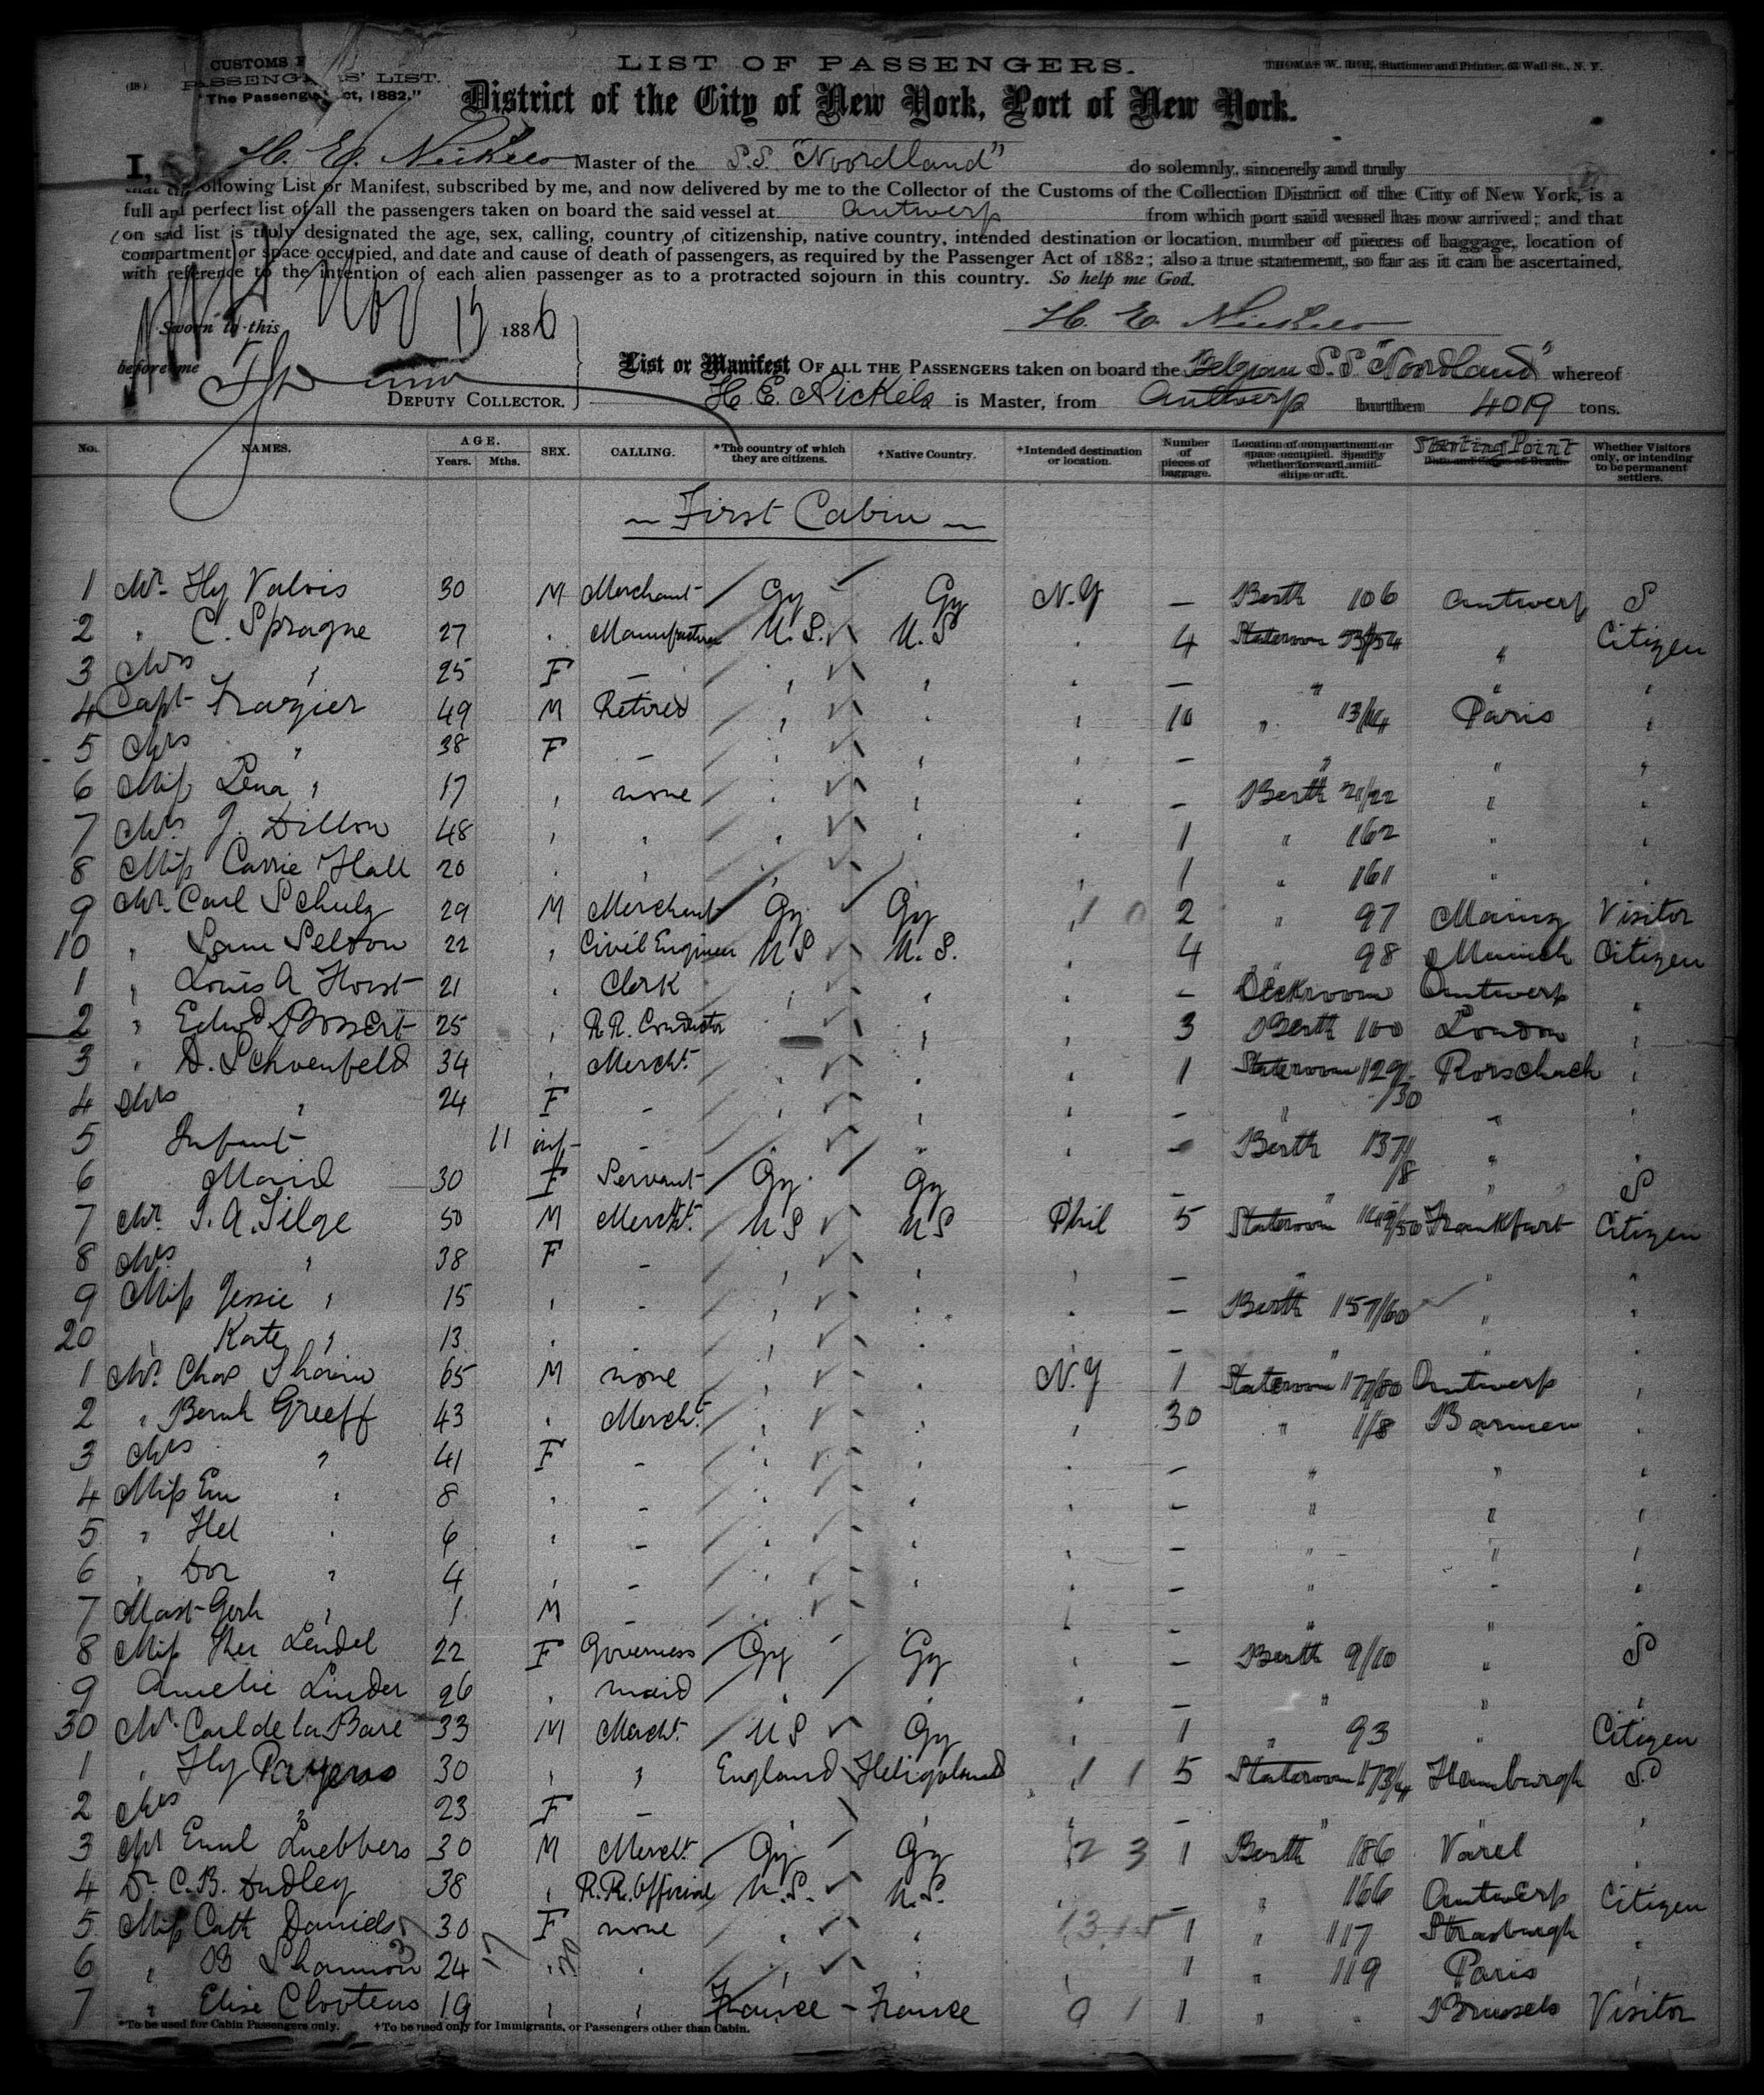 (18) CUSTOMS
PASSENGERS' LIST.
"The Passenger Act, 1882."
LIST OF PASSENGERS.
THOMAS W. Stationer and Printer, 63 Wall St., N. Y.
District of the City of New York, Port of New York.
I, H. E. Nickels Master of the S.S. "Noordland" do solemnly, sincerely and truly
that the following List or Manifest, subscribed by me, and now delivered by me to the Collector of the Customs of the Collection District of the City of New York, is a
full and perfect list of all the passengers taken on board the said vessel at Antwerp from which port said vessel has now arrived; and that
on said list is truly designated the age, sex, calling, country of citizenship, native country, intended destination or location, number of pieces of baggage, location of
compartment or space occupied, and date and cause of death of passengers, as required by the Passenger Act of 1882; also a true statement, so far as it can be ascertained,
with reference to the intention of each alien passenger as to a protracted sojourn in this country. So help me God.
H. E. Nickels
Sworn to this Nov 15 1886
before me
DEPUTY COLLECTOR.
List or Manifest OF ALL THE PASSENGERS taken on board the Belgian S.S. "Noordland" whereof
H. E. Nickels is Master, from Antwerp burthen 4019 tons.
No. NAMES. AGE. Years. Mths. SEX. CALLING. *The country of which they are citizens. †Native Country. †Intended destination or location. Number of pieces of baggage. Location of compartment or space occupied. Specify whether forward, amidships or aft. Starting Point Date and Cause of Death. Whether Visitors only, or intending to be permanent settlers.
First Cabin
1 Mr. Hy Valois 30 M Merchant Gy Gy N.Y — Berth 106 Antwerp S
2 " C. Sprague 27 " Manufacturer U.S. U.S " 4 Stateroom 53/54 " Citizen
3 Mrs " 25 F — " " " — " " "
4 Capt Frazier 49 M Retired " " " 10 " 13/14 Paris "
5 Mrs " 38 F — " " " — " " "
6 Miss Lena " 17 " none " " " — Berth 21/22 " "
7 Mrs J. Dillon 48 " " " " " 1 " 162 " "
8 Miss Carrie Hall 20 " " " " " 1 " 161 " "
9 Mr. Carl Schulz 29 M Merchant Gy Gy " 10 2 " 97 Mainz Visitor
10 " Sam Seldon 22 " Civil Engineer U S U.S. " 4 " 98 Munich Citizen
1 " Louis A Horst 21 " Clerk " " " — Deckroom Antwerp "
2 " Edwd Bossert 25 " R.R. Conductor " " " 3 Berth 100 London "
3 " D. Schoenfeld 34 " Mercht. " " " 1 Stateroom 129/30 Rorschach "
4 Mrs " 24 F — " " " — " " "
5 Infant 11 inf — " " " — Berth 137/8 " "
6 Maid 30 F Servant Gy Gy " — " " S
7 Mr. Tilge 50 M Mercht. U S U S Phil 5 Stateroom 149/50 Frankfurt Citizen
8 Mrs " 38 F — " " " — " " "
9 Miss Jessie " 15 " — " " " — Berth 157/60 " "
20 " Kate " 13 " " " " — " " "
1 Mr. Chas 65 M none " " N.Y 1 Stateroom 177/80 Antwerp "
2 " Bernh Greeff 43 " Mercht. " " " 30 " 1/8 Barmen "
3 Mrs " 41 F — " " " — " " "
4 Miss Em " 8 " — " " " — " " "
5 " Hel " 6 " — " " " — " " "
6 " Dor " 4 " — " " " — " " "
7 Mast Gerh " 1 M — " " " — " " "
8 Miss Ther Lendel 22 F Governess Gy Gy " — Berth 9/10 " S
9 Amelie Linder 26 " maid " " " — " " "
30 Mr. Carl de la Bare 33 M Mercht. U S Gy 1 " 93 " Citizen
1 " Hy 30 " " England Heligoland " 1 1 5 Stateroom 173/4 Hamburgh S
2 Mrs " 23 F — " " " — " " "
3 Mr Emil Luebbers 30 M Mercht. Gy Gy 23 1 Berth 186 Varel "
4 Dr. C. B. Dudley 38 " R.R. Official U.S. U.S. — " 166 Antwerp Citizen
5 Miss Cath Daniels 30 F none " " 1 " 117 Strasburgh "
6 " B Shannon 24 " " " " " 1 " 119 Paris "
7 " Elise Clootens 19 " " France – France 9 1 1 " " Brussels Visitor
*To be used for Cabin Passengers only. †To be used only for Immigrants, or Passengers other than Cabin.